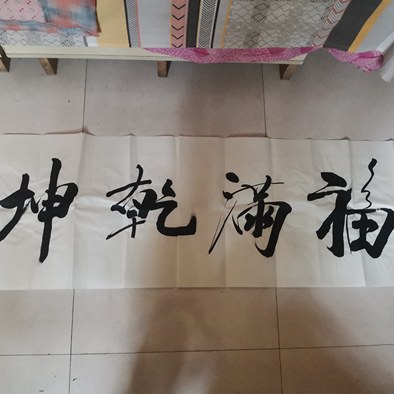 福满乾坤